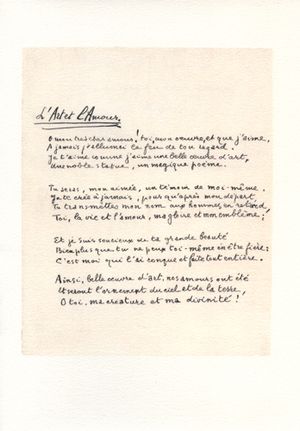 L'Art et l'Amour.
O mon très cher amour! toi, mon œuvre, et que j'aime,
A jamais j'allumai le feu de ton regard.
Je t'aime comme j'aime une belle œuvre d'art,
Une noble statue, un magique poème.
Tu seras, mon aimée, un témoin de moi-même.
Je te crée à jamais, pour qu'après mon départ,
Tu transmettes mon nom aux hommes en retard,
Toi, la vie et l'amour, ma gloire et mon emblème;
Et je suis soucieux de ta grande beauté
Bien plus que tu ne peux toi-même en être fière:
C'est moi qui l'ai conçue et faite tout entière.
Ainsi, belle œuvre d'art, nos amours ont été
Et seront l'ornement du ciel et de la terre,
O toi, ma créature et ma divinité!